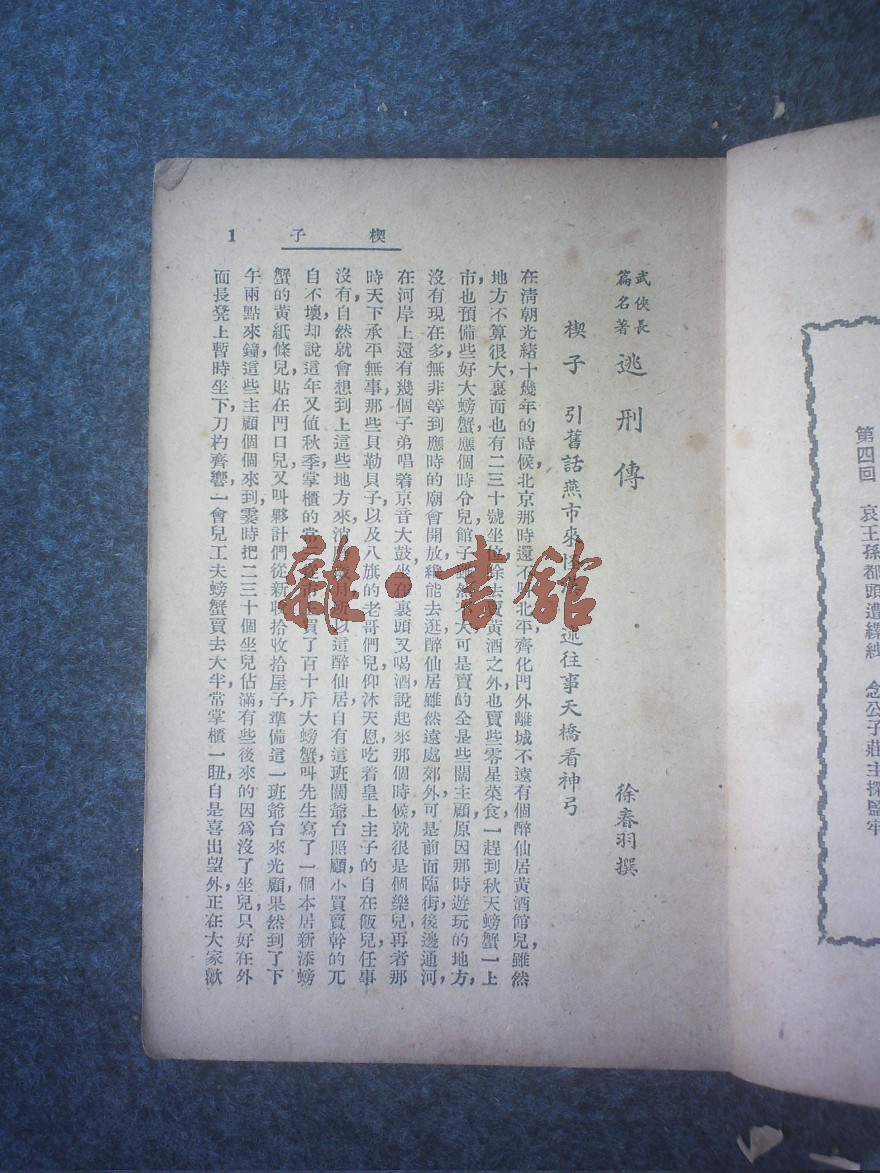 第四回　哀王孫都頭遭縲絏　念公子莊主探監牢
楔子
1
武俠長
篇名著
逃刑傳
徐春羽撰
楔子　引舊話燕市來　述往事天橋看神弓
在清朝光緒十幾年的時候，北京那時還不叫北平，齊化門外離城不遠有個醉仙居黃酒館兒，雖然
地方不算很大，裏面也有二三十號坐位，除去賣黃酒之外，也賣些零星菜食，一趕到秋天，螃蟹一上
市，也預備些好大螃蟹，應個時令兒，館子雖然不大，可是賣的全是些闊主顧，原因那時遊玩的地方，
沒有現在多，無非等到應時的廟會開放，纔能去逛，醉仙居雖然遠處郊外，可是前面臨街，後邊通河，
在河岸上還有幾個子弟唱着京音大鼓，坐在裏頭又喝酒，說起來那個時候，就很是個樂兒，再者那
時天下承平無事，那些貝勒貝子，以及八旗的老哥們兒，仰沐天恩，吃着皇上主子的自在飯兒，任事
沒有，自然就會想到上這些地方來，所以這醉仙居自有這班闊爺台照顧，小買賣幹的兀
自不壞，却說這年又值秋季，掌櫃的常市買了百十斤大螃蟹，叫先生寫了一個本居新添螃
蟹的黃紙條兒，貼在門口兒，又叫夥計們從新收拾收拾屋子，準備這一班爺台來光顧，果然到了下
午兩點來鐘，這些主顧個個來到，霎時把二三十個坐兒佔滿，有些後來的，因爲沒了坐兒，只好在外
面長凳上暫時坐下，刀杓齊響，一會兒工夫，螃蟹賣去大半，常掌櫃一瞧，自是喜出望外，正在大家歡
雜·書館